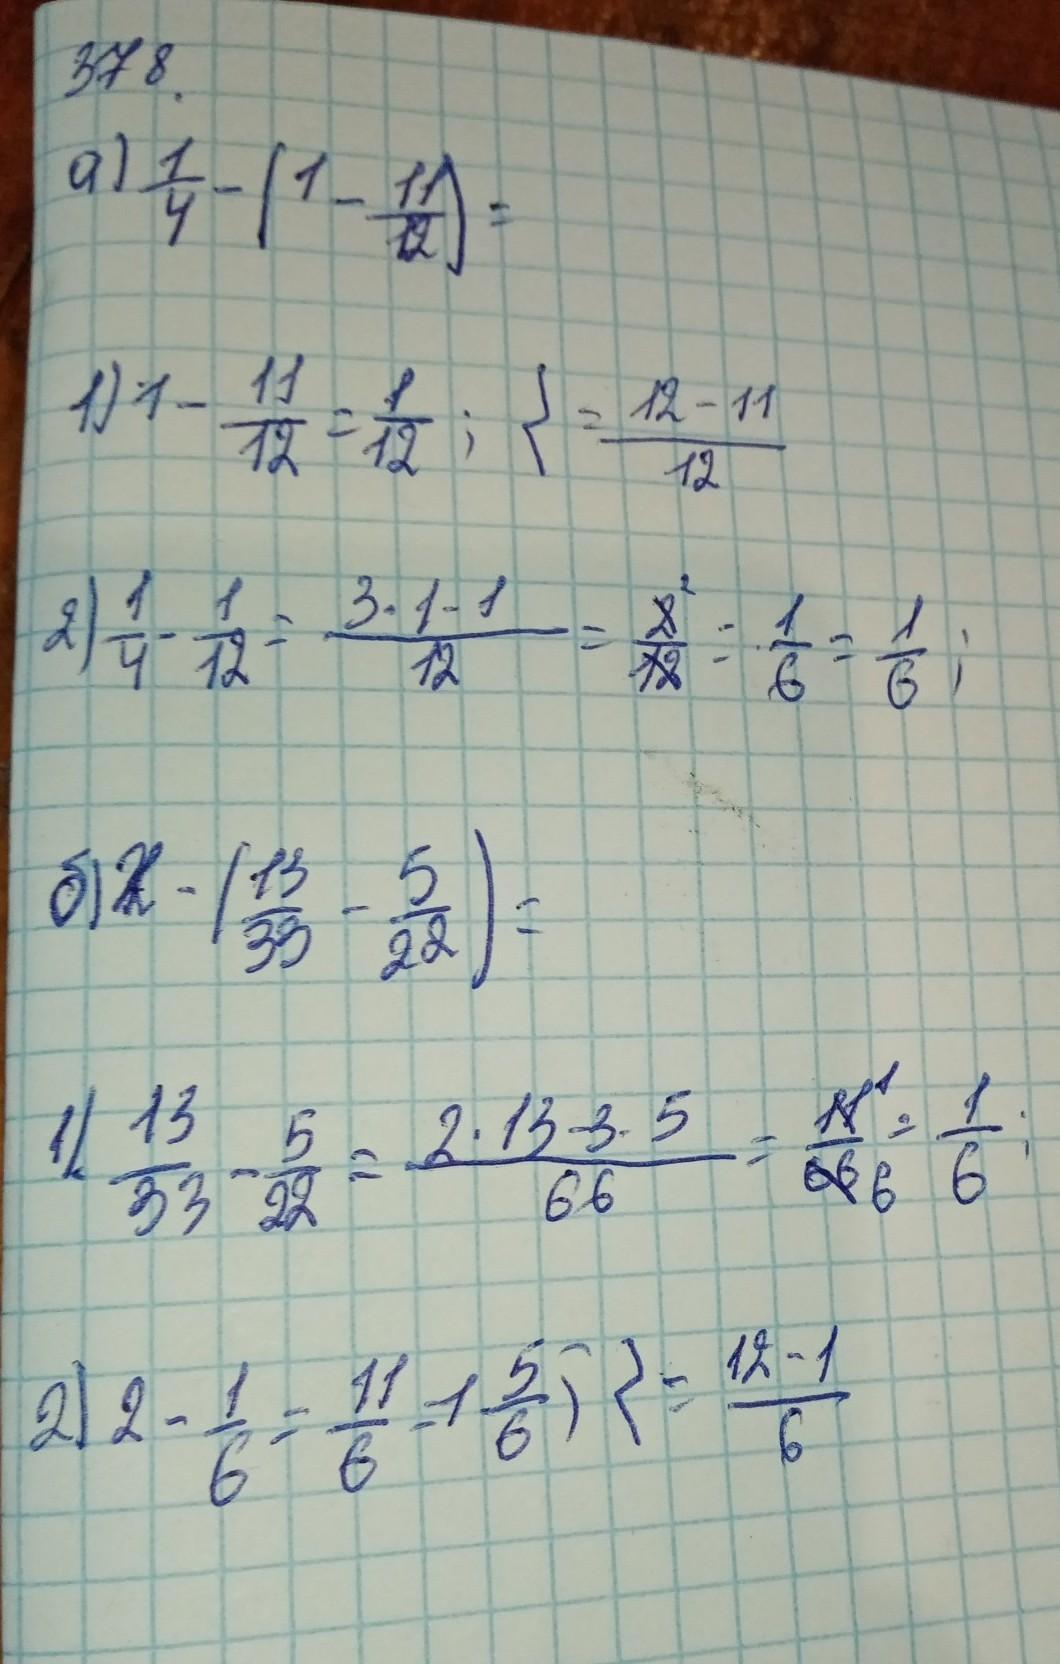 378.
а) 1/4 - (1 - 11/12) =
1) 1 - 11/12 = 1/12 ; { = 12 - 11/12
2) 1/4 - 1/12 = 3·1-1/12 = 2²/12 = 1/6 = 1/6 ;
б) 2 - (13/33 - 5/22) =
1) 13/33 - 5/22 = 2·13-3·5/66 = 11¹/66 6 = 1/6 ;
2) 2 - 1/6 = 11/6 = 1 5/6 ; { = 12-1/6